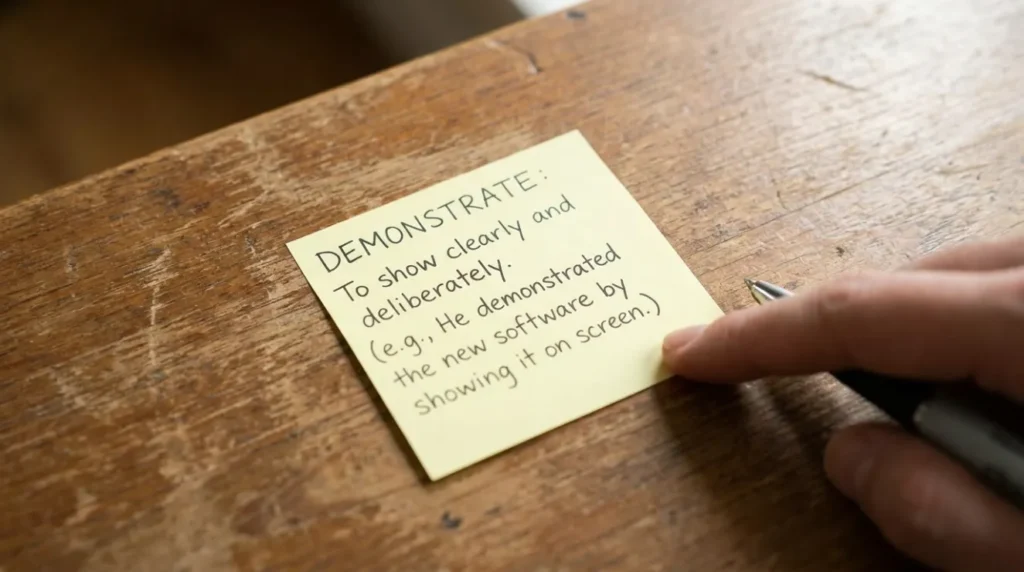 DEMONSTRATE:
To show clearly and
deliberately.
(e.g., He demonstrated
the new software by
showing it on screen.)